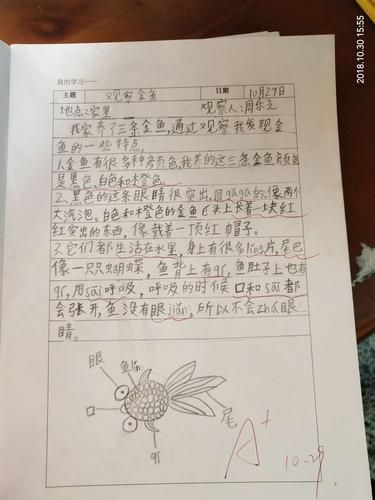 2018.10.30 15:55
我的学习——
主题 观察金鱼 日期 10月27日
地点:家里 观察人:周乐之
我家养了三条金鱼,通过观察我发现金
鱼的一些特点。
1.金鱼有很多种颜色,我养的这三条金鱼颜色
是黑色、白色和橙色。
2.黑色的这条眼睛很突出,圆gǔgǔ的,像两个
大汽泡。白色和橙色的金鱼头上长着一块红
红突出的东西,像戴着一顶红帽子。
3.它们都生活在水里,身上有很多lín片,尾巴
像一只蝴蝶,鱼背上有qí,鱼肚子上也有
qí,用sāi呼吸,呼吸的时候口和sāi都
会张开,鱼没有眼jiǎn,所以不会zhǎ眼
睛。
眼 鱼lín
口
尾
qí
A+
10.29